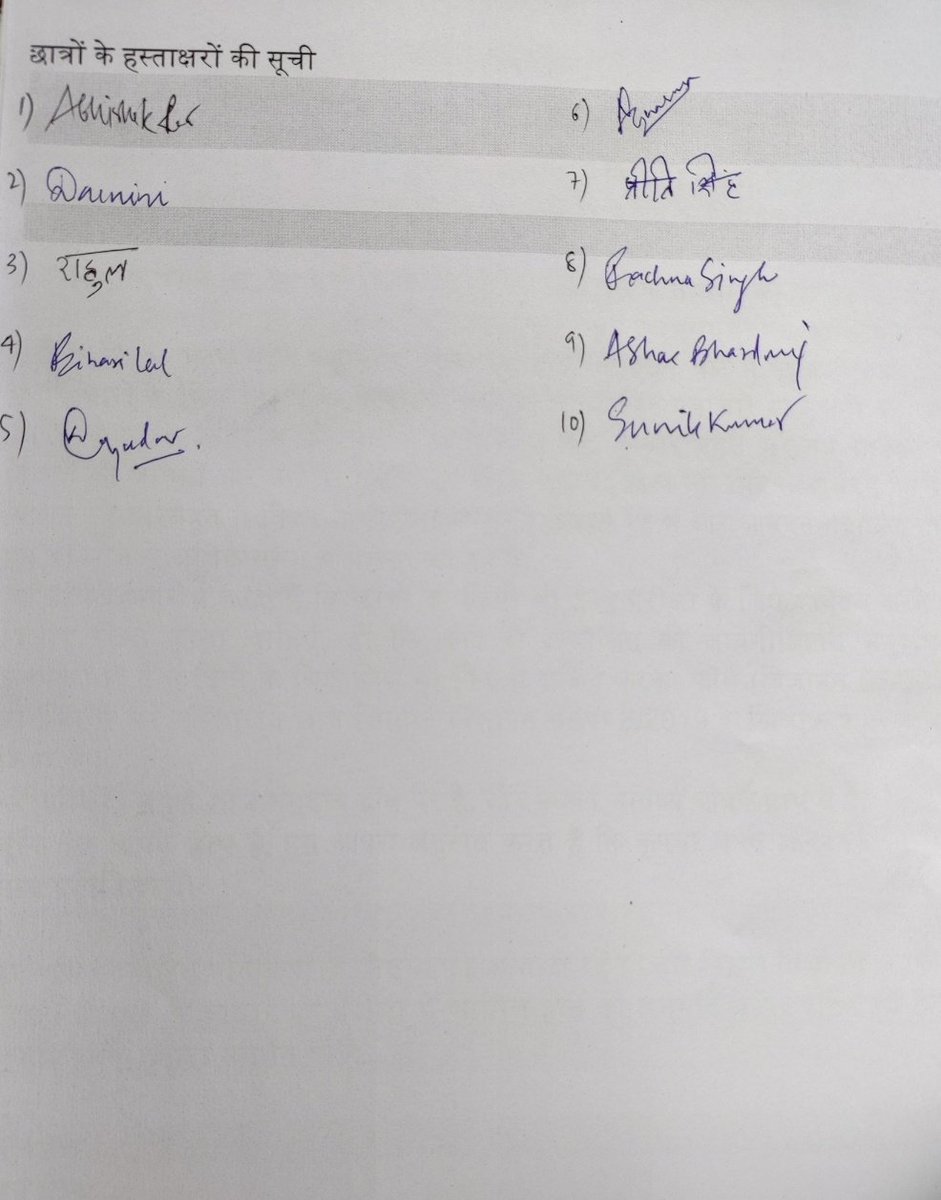 छात्रों के हस्ताक्षरों की सूची
1) Abhishek
2) Damini
3) राहुल
4) Biharilal
5)
6)
7) प्रीति सिंह
8) Rachna Singh
9) Ashae Bhardwaj
10) Sunil Kumar